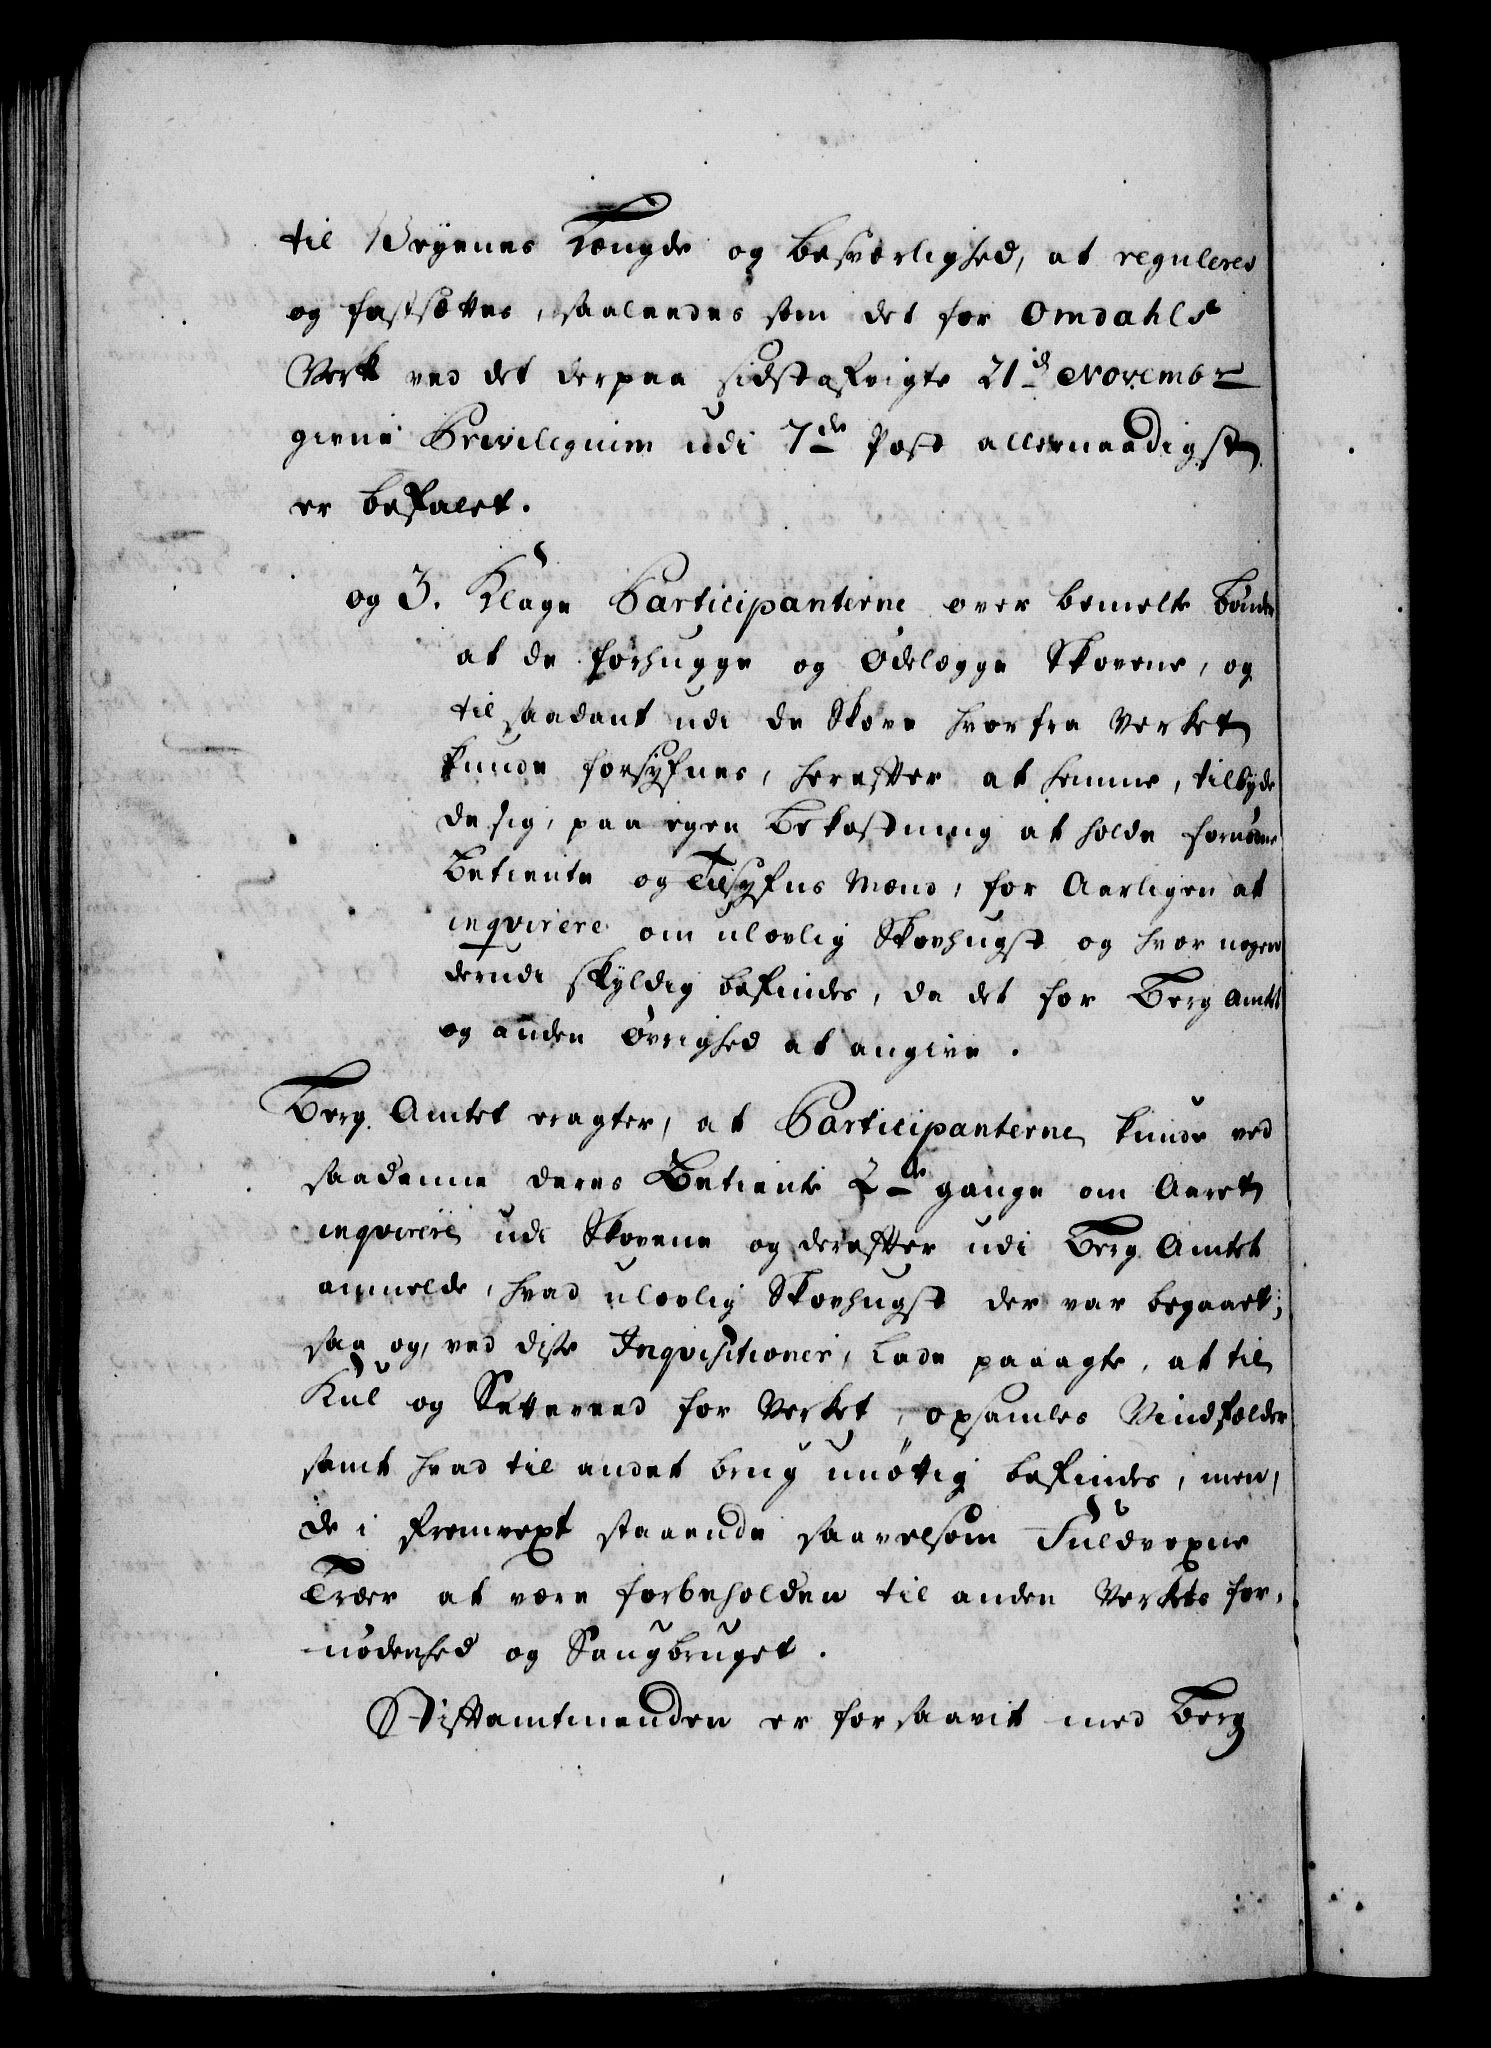 til Weyenes Længde og besværlighed, at reguleres
og fastsættes, saaledes som det for Omdahls
Verk ved det derpaa sidstafvigte 21de November
givne Privilegium udi 7de Post allernaadigst
er befalet.
og 3. Klage Participanterne over bemelte Bønder
at de forhugge og Ødelægge Skovene, og
til saadant udi de Skove hvorfra Verket
kunde forsyfnes, herefter at hemme, tilbyde
de sig, paa egen Bekostning at holde fornødne
Betiente og Tilsyfns Mænd, for Aarligen at
inqvirere om ulovlig Skovhugst og hvor nogen
derudi skyldig befindes, da det for Berg Amtet
og anden Øvrighed at angive.
Berg Amtet eragter, at Participanterne kunde ved
saadanne deres Betiente 2de gange om Aaret
inqvirere udi Skovene og derefter udi Berg Amtet
anmelde, hvad ulovlig Skovhugst der var begaaet;
saa og, ved disse Inqvisitioner, lade paaagte, at til
Kul og Setteved for Verket, opsamles Vindfælder
samt hvad til andet brug unøttig befindes, men,
de i fremvext staaende saavelsom Fuldvoxne
Træer at være forbeholden til anden Verkets for-
nødenhed og Saugbruget.
Stiftamtmanden er forsaavit med Berg